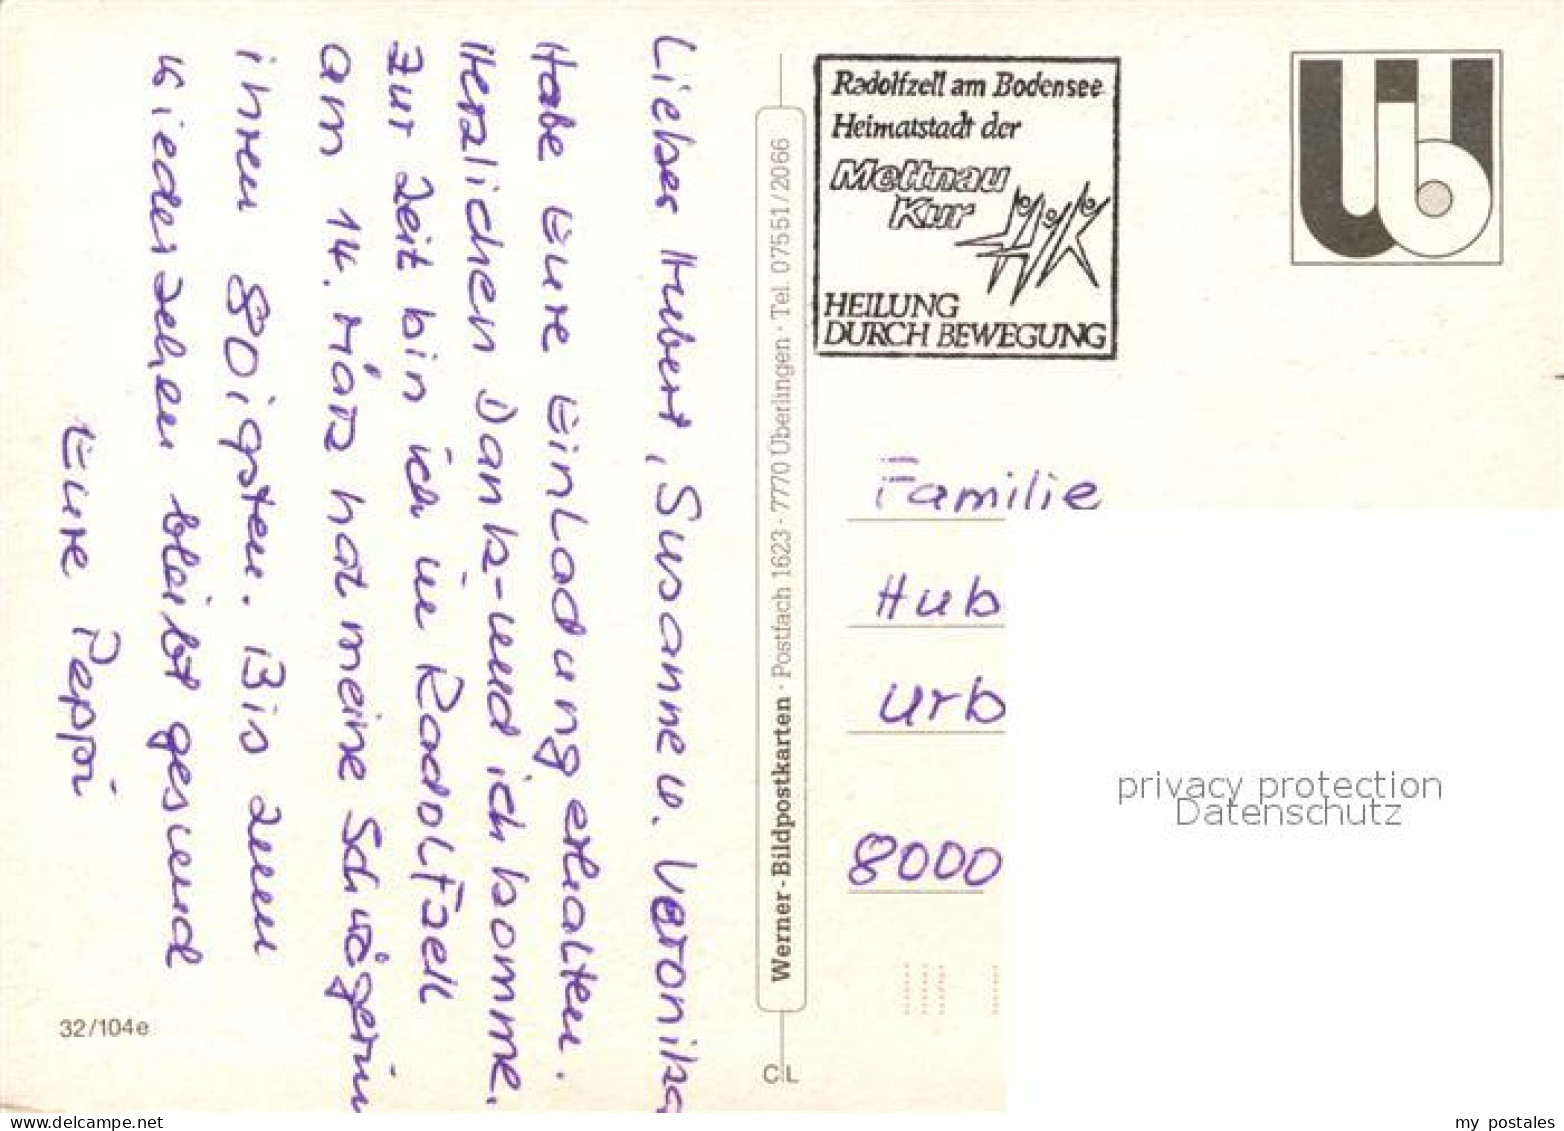 Lieber Hubert, Susanne u. Veronika
Habe Eure Einladung erhalten.
Herzlichen Dank-und ich komme.
Zur Zeit bin ich in Radolfzell
am 14. März hat meine Schwägerin
ihren 80igsten. Bis zum
Wiedersehen bleibt gesund
Eure Peppi
32/104e
Werner-Bildpostkarten · Postfach 1623 · 7770 Uberlingen · Tel. 07551/2066
CL
Radolfzell am Bodensee
Heimatstadt der
Mettnau
Kur
HEILUNG
DURCH BEWEGUNG
Familie
Hub
Urb
8000
privacy protection
Datenschutz
www.delcampe.net
my_postales